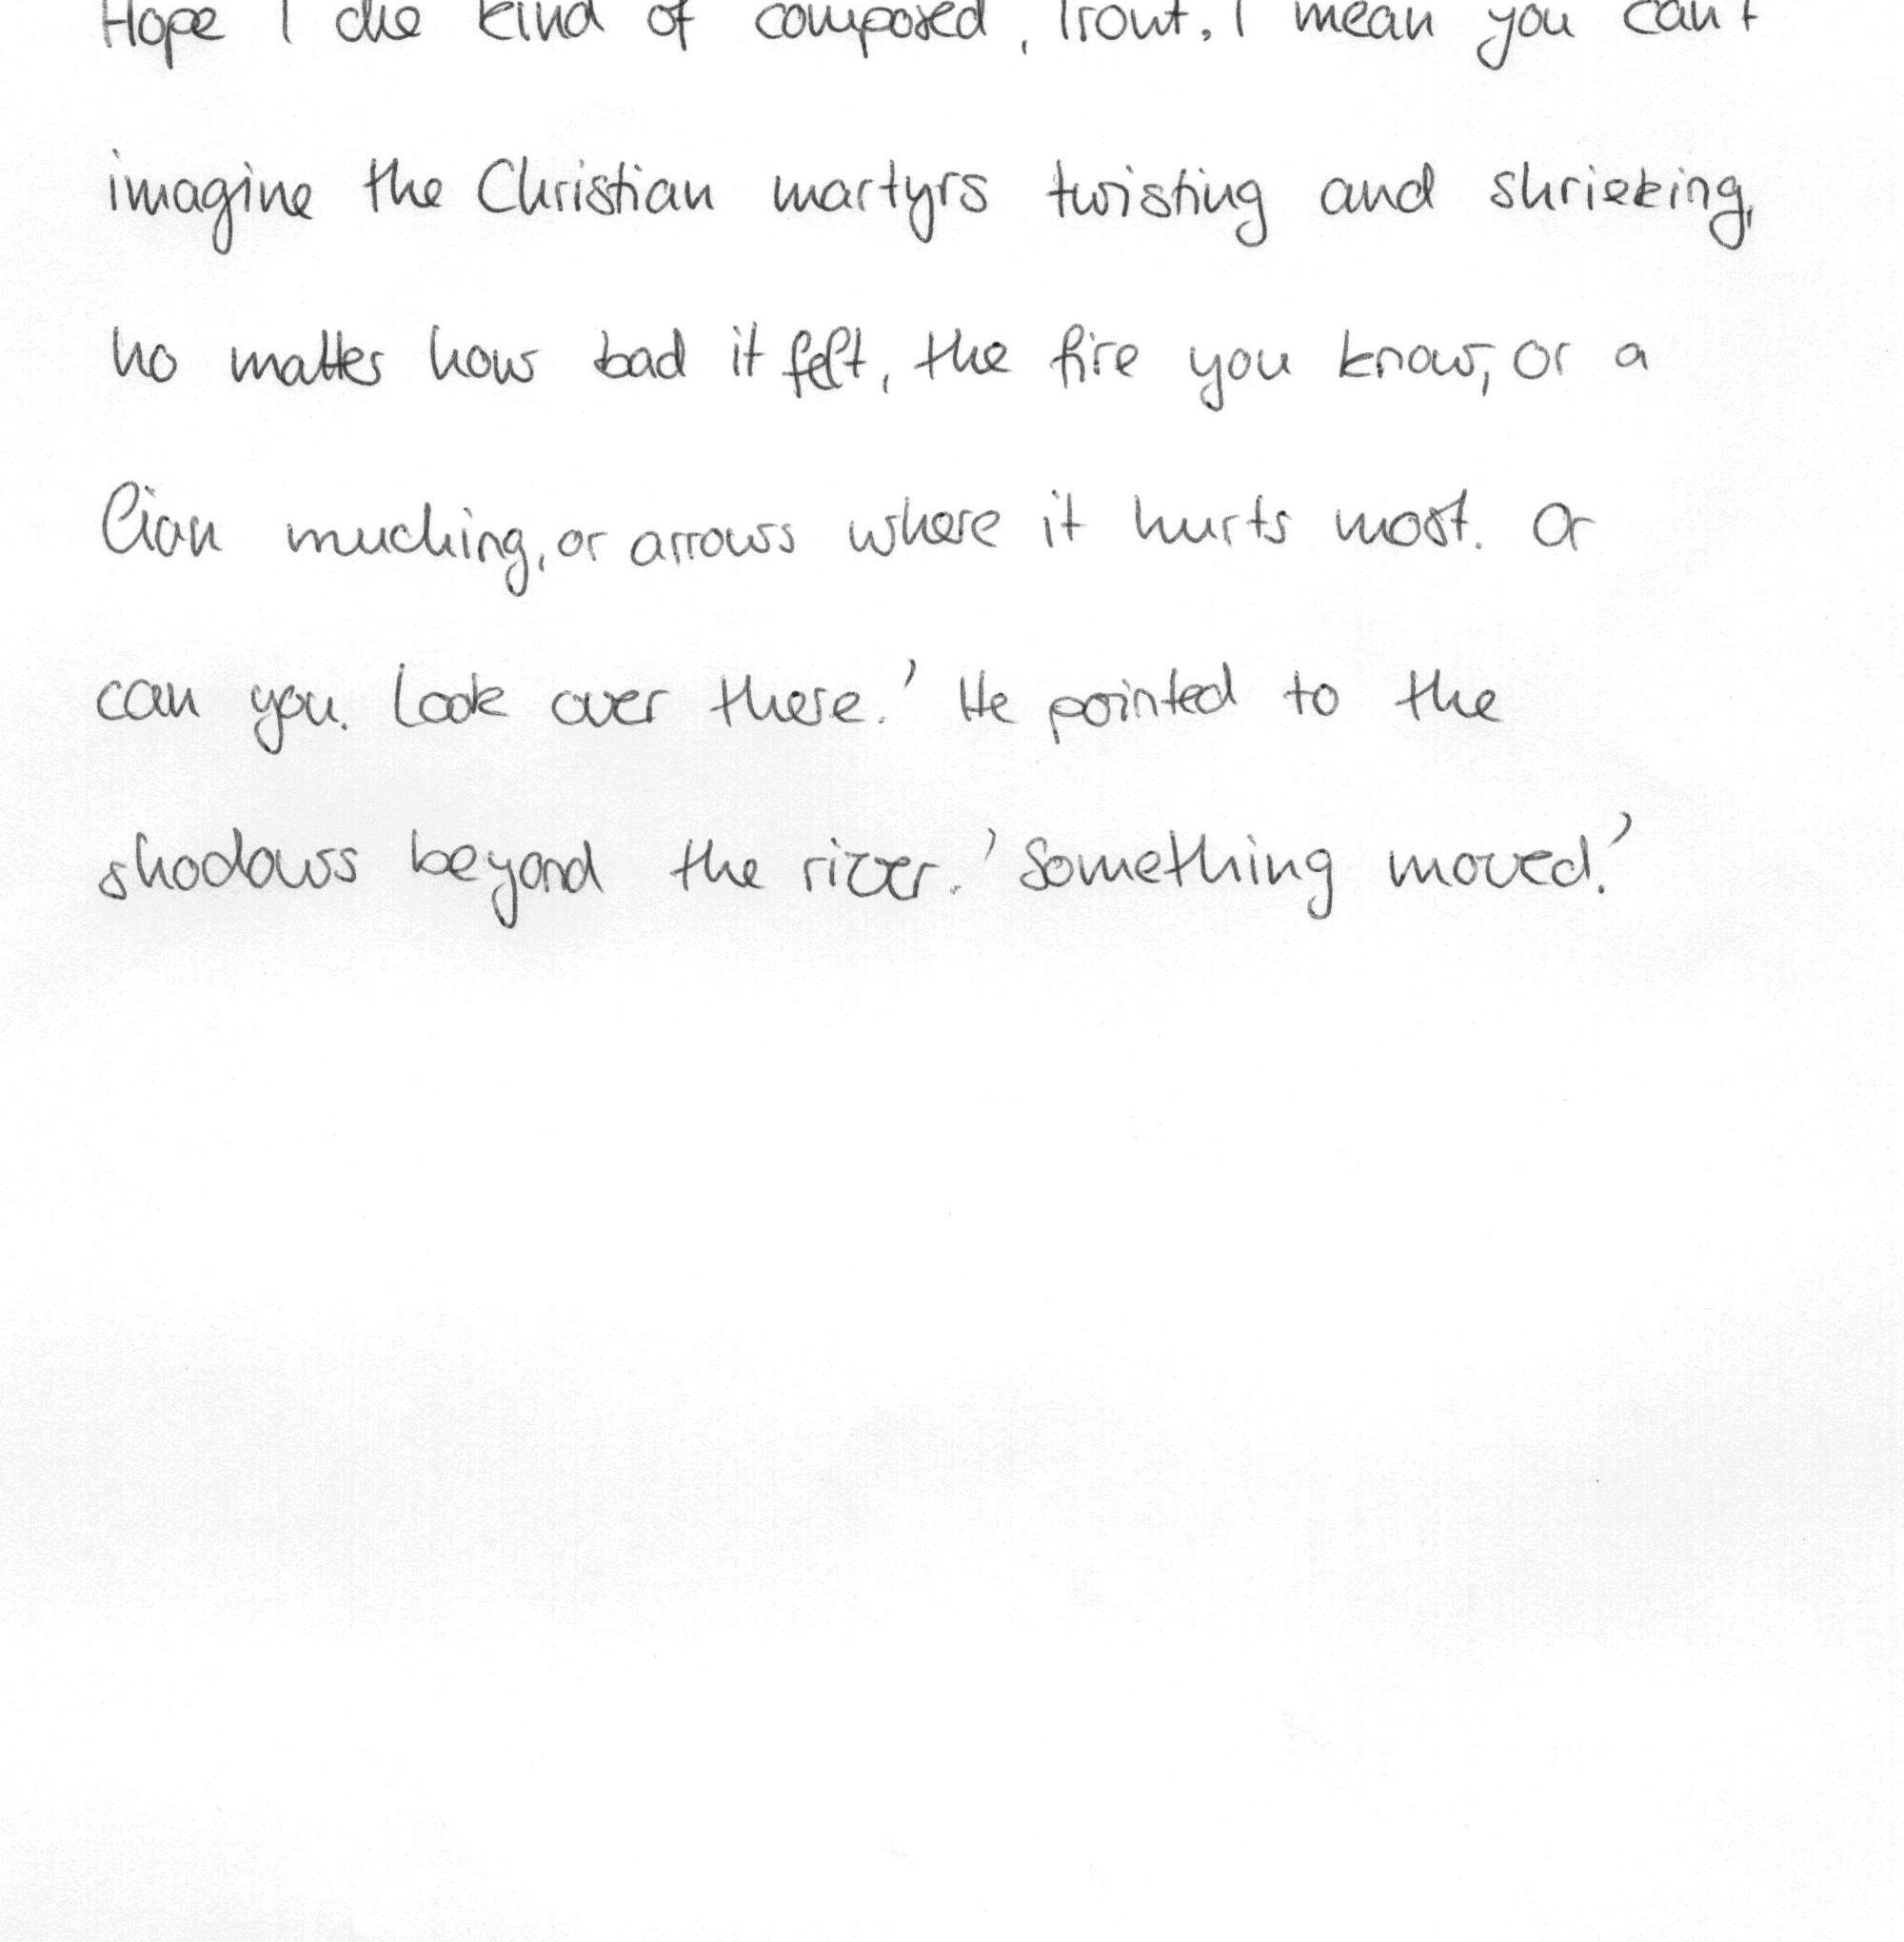 Hope I die kind of composed, Trout. I mean you can't
imagine the Christian martyrs twisting and shrieking,
no matter how bad it felt, the fire you know, or a
lion muching, or arrows where it hurts most. Or
can you. Look over there.' He pointed to the
shodows beyond the river. 'Something moved.'